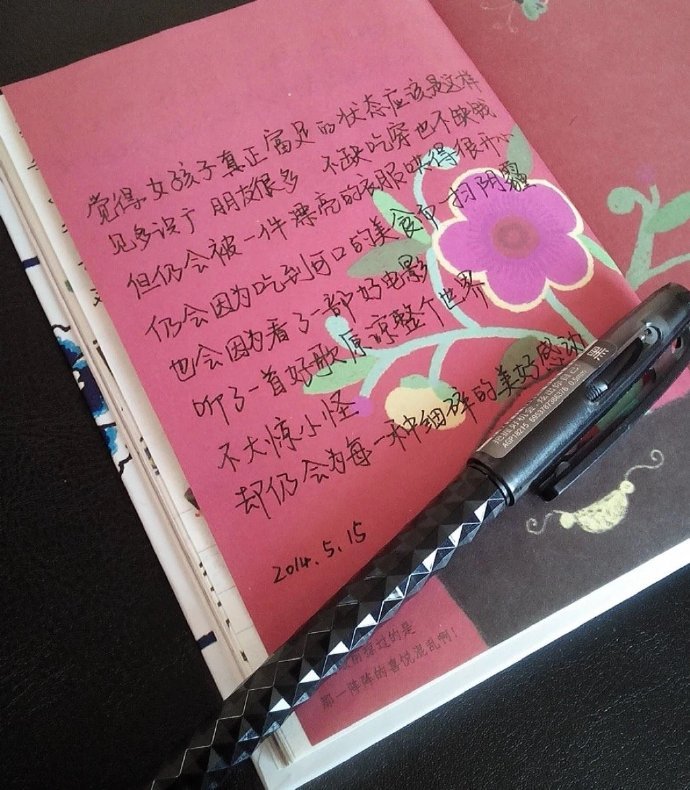 觉得女孩子真正富足的状态应该是这样
见多识广 朋友很多 不缺吃穿也不缺钱
但仍会被一件漂亮的衣服哄得很开心
仍会因为吃到可口的美食而一扫阴霾
也会因为看了一部好电影
听了一首好歌原谅整个世界
不大惊小怪
却仍会为每一种细碎的美好感动
2014.5.15
黑
AGP16215 0.5mm
过的是
那一阵阵的喜悦混乱啊!